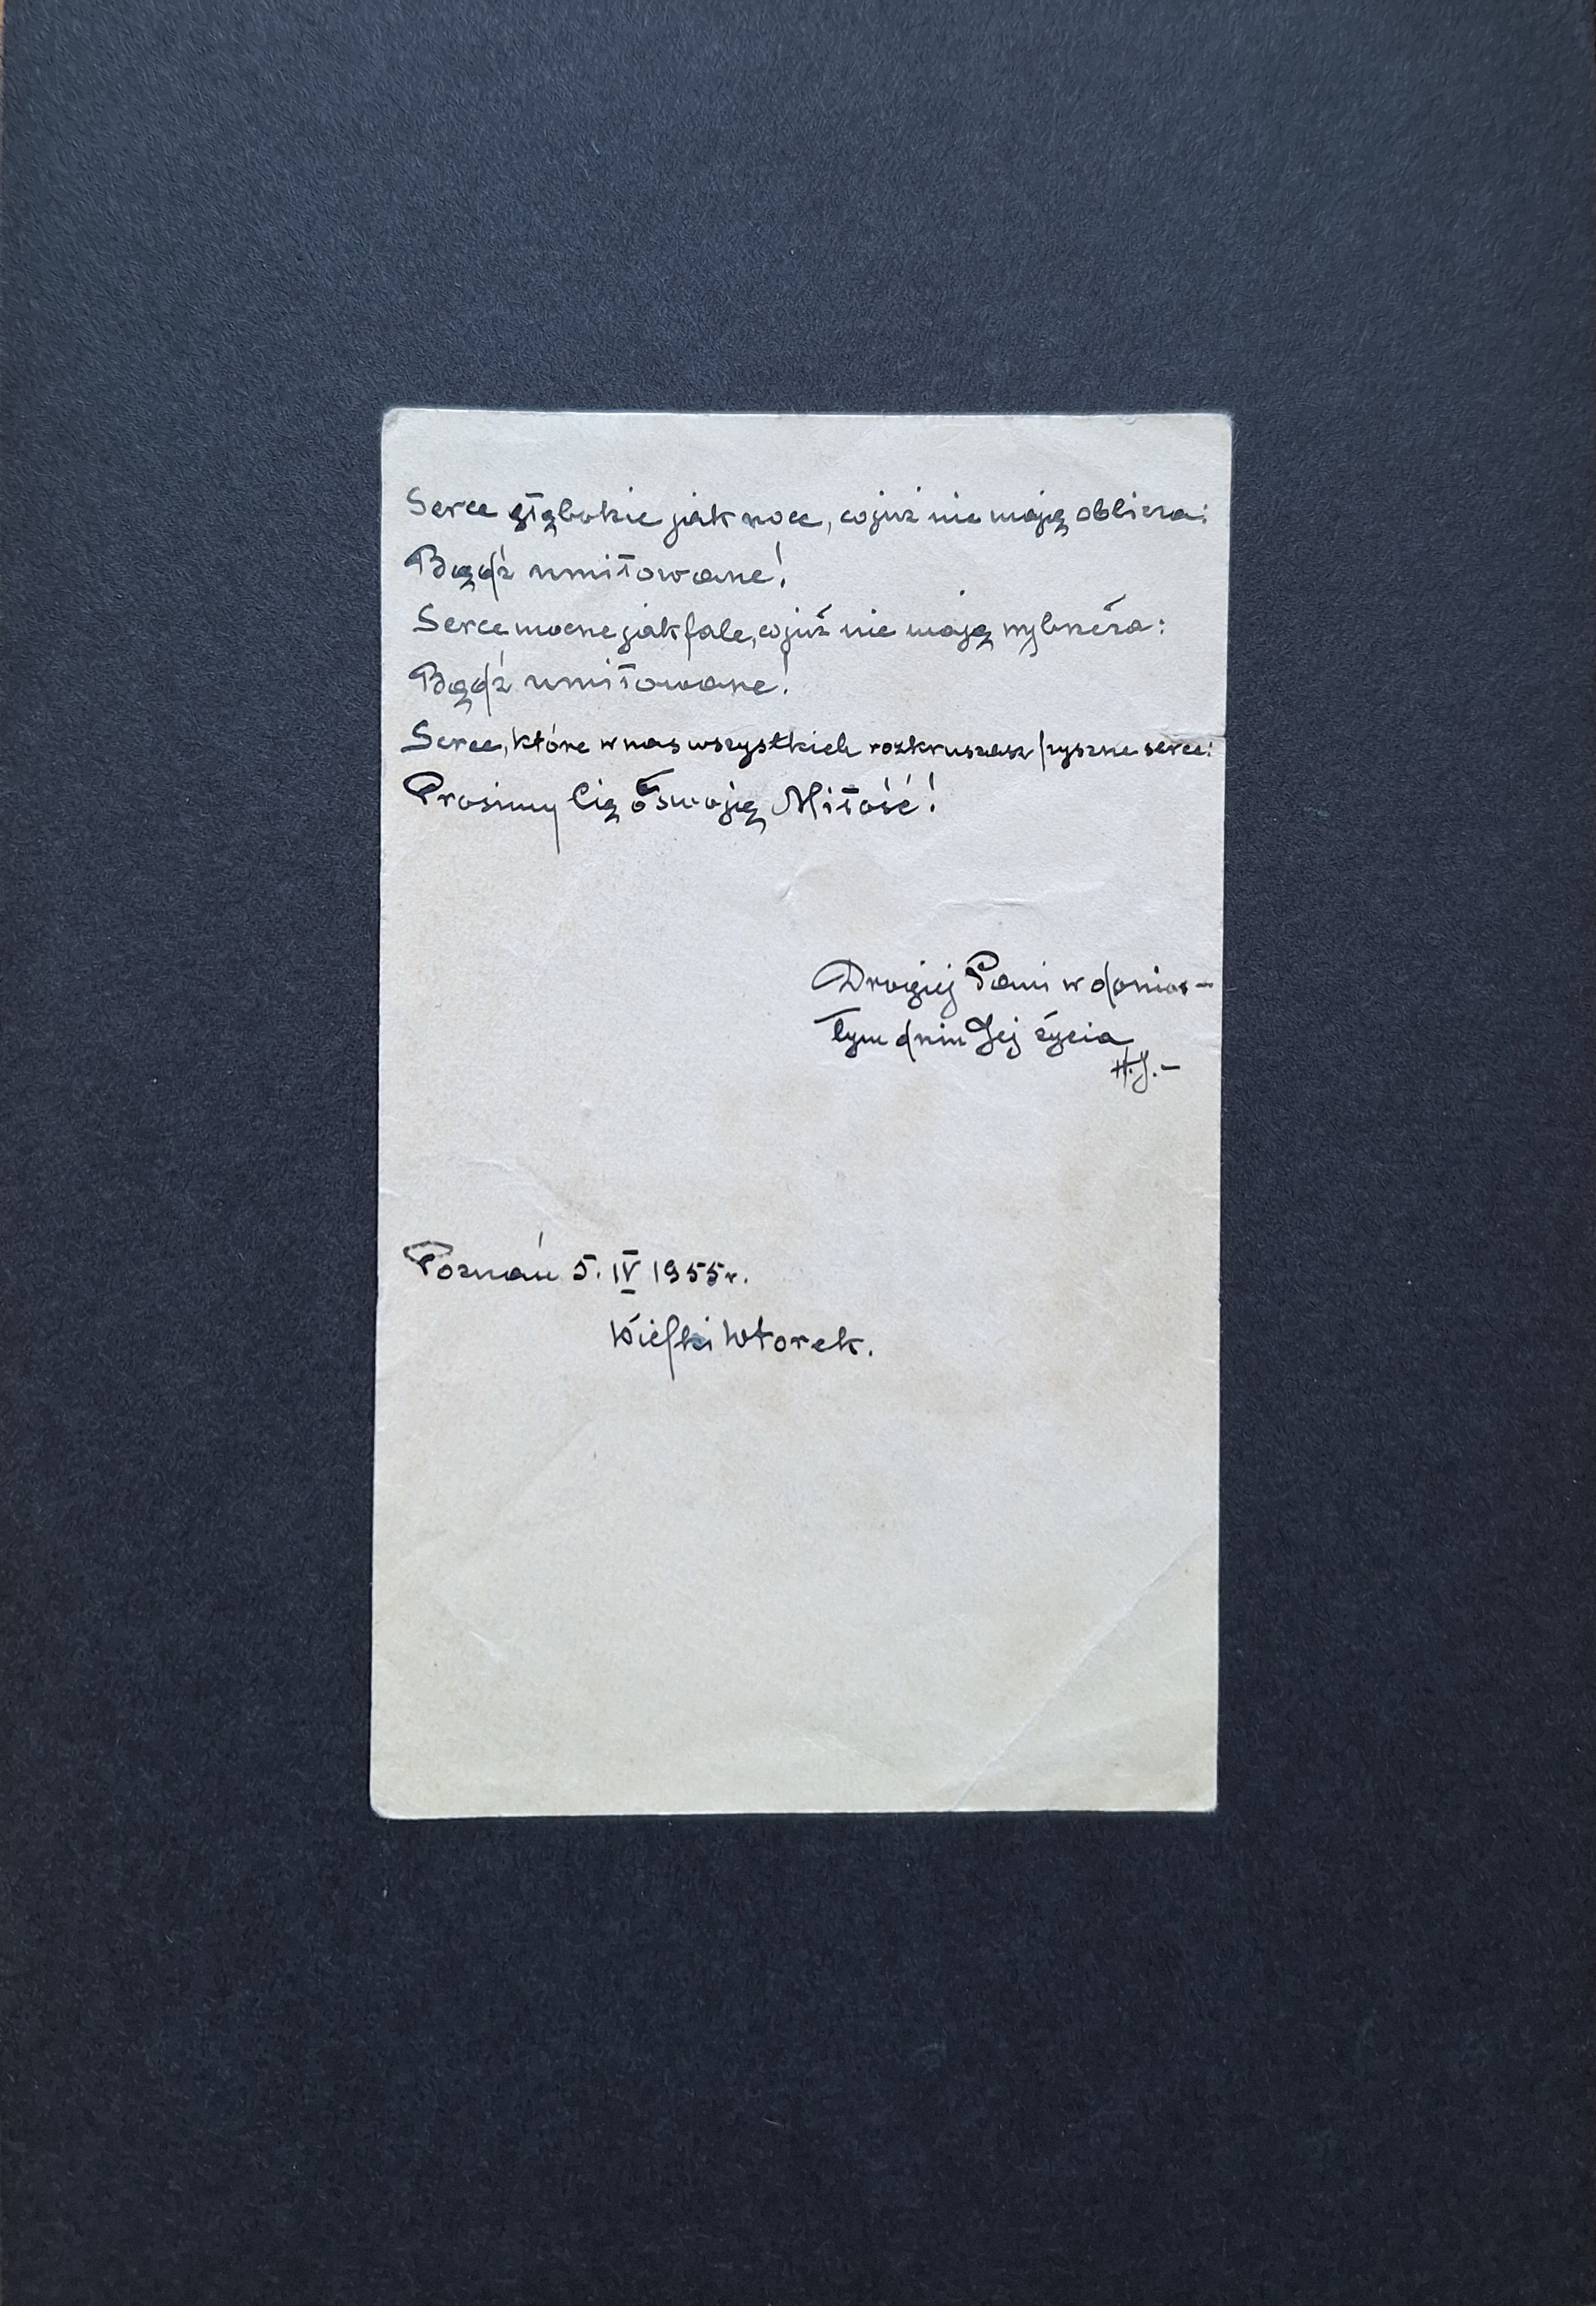 Serce głębokie jak noce, co już nie mają oblicza:
Bądź umiłowane!
Serce mocne jak fale, co już nie mają wybrzeża:
Bądź umiłowane!
Serce, które w nas wszystkich rozkruszasz pyszne serce:
Prosimy Cię o swoją Miłość!
Drogiej Pani w donios-
łym dniu Jej życia
H.J.-
Poznań 5. IV 1955r.
Wielki Wtorek.